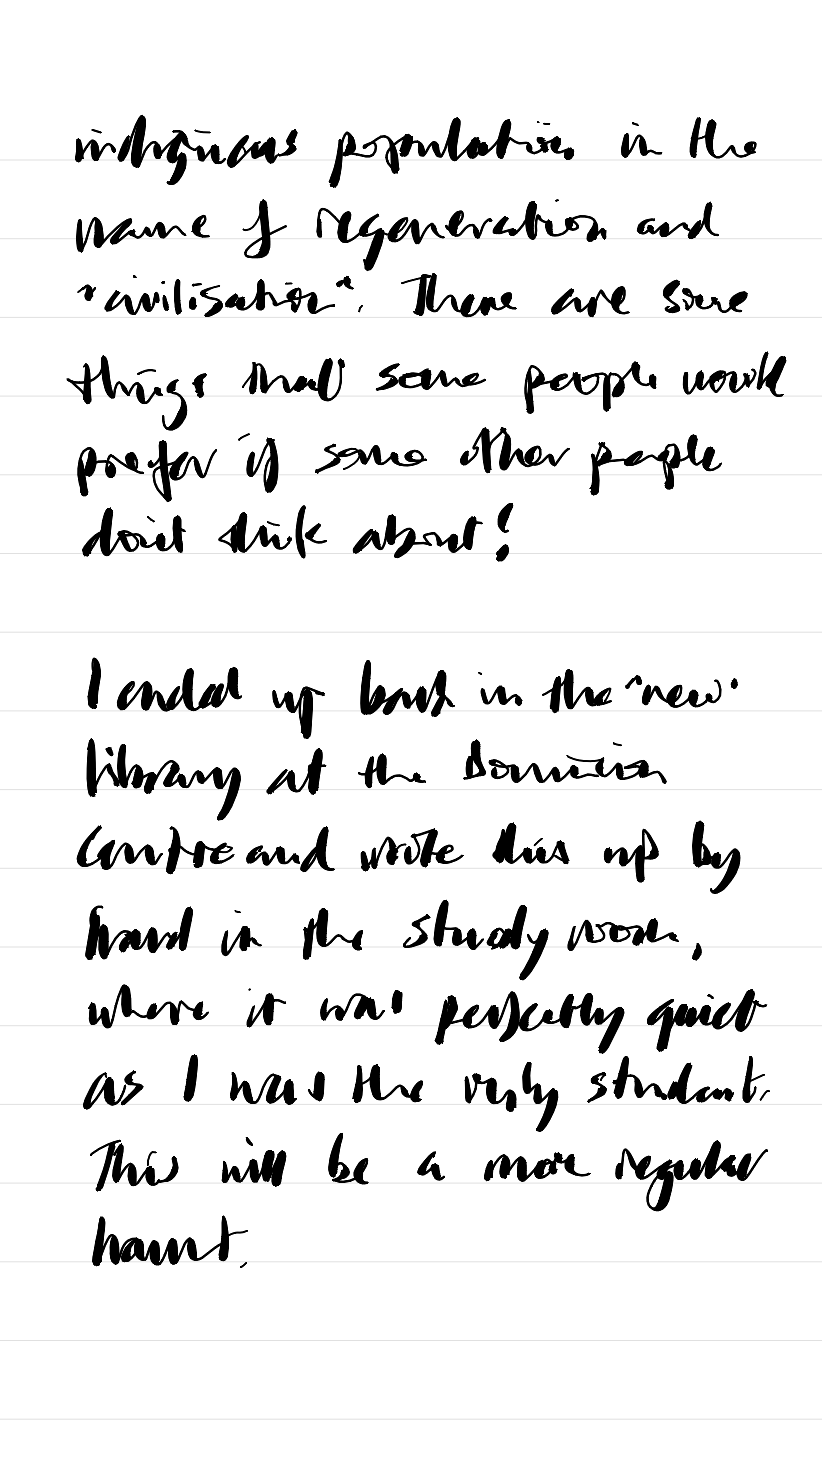 indigenous populations in the
name of regeneration and
"civilisation". There are some
things that some people would
prefer if some other people
don't think about!
I ended up back in the "new"
library at the Dominion
Centre and wrote this up by
hand in the study room,
where it was perfectly quiet
as I was the only student.
This will be a more regular
haunt.